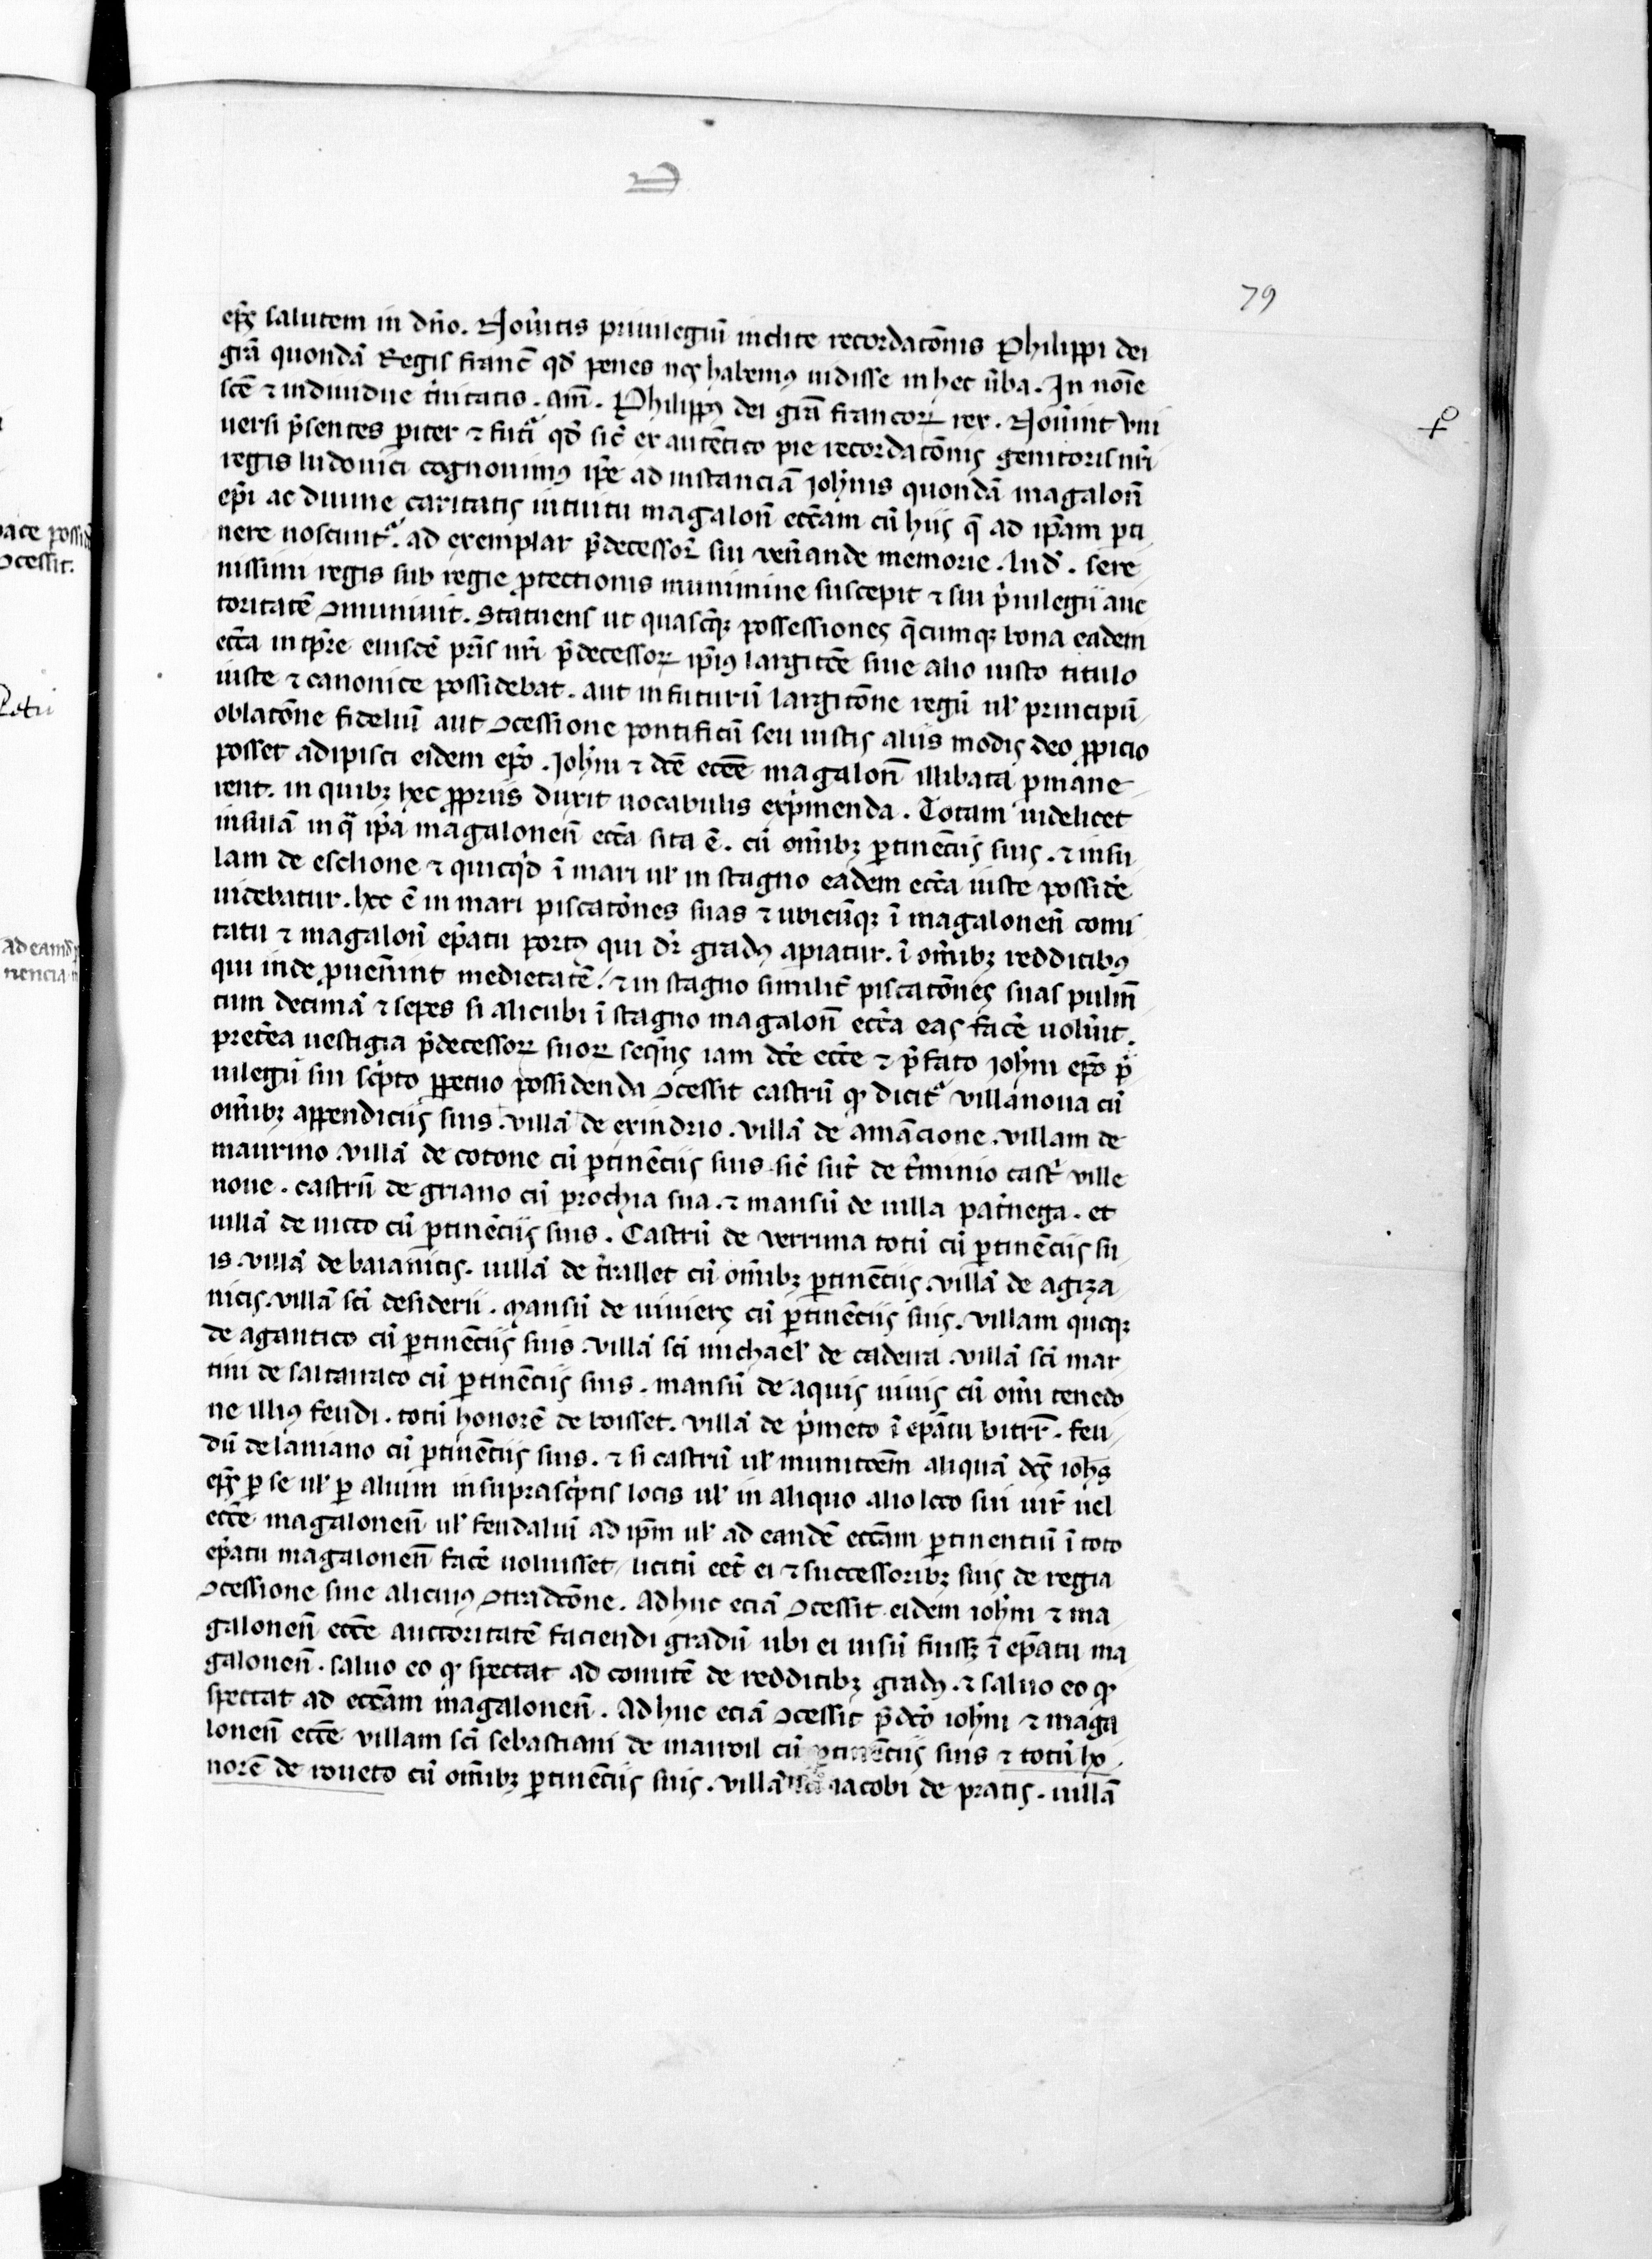 79
ep̄s salutem in dn̄o. Nou̾itis priuilegiū inclite recordatōnis Philippi dei
grā quondā Regis franc̄ qd̄ penes nos habemꝰ uidisse in hec u̾ba. In noīe
scē ⁊ indiuidue t̾nitatis. am̄. Philippꝰ dei grā francoꝝ rex. Nou̾int vni
uersi p̾sentes pariter ⁊ futi qd̄ sic̄ ex autētico pie recordatōnis genitoris nr̄i
regis ludouici cognouimꝰ ip̄e ad instanciā Joh̄nis quondā magalon̄
ep̄i ac diuine caritatis intuitu magalon̄ eccām cū hiis q̄ ad ip̄am ꝑti
nere noscunt᷑. ad exemplar p̾decessoꝝ sui ven̾ande memorie. lud̄. sere
nissimi regis sub regie ꝓtectionis munimine suscepit ⁊ sui p̾uilegii auc
toritatē ꝯmuniuit. Statuens ut quascūqꝫ possessiones q̄cumqꝫ bona eadem
ecc̄a in tp̄re eiusdē pr̄is nr̄i p̾decessoꝝ ip̄iꝰ largitōē siue alio iusto titulo
iuste ⁊ canonice possidebat. aut in futurū largitōne regū ul̾ principū
oblatōne fideliū aut ꝯcessione pontificū seu iustis aliis modis deo ꝓpicio
posset adipisci eidem ep̄o. Joh̄ni ⁊ dc̄e ecc̄e magalon̄ illibata ꝑmane
rent. in quibꝫ hec ꝓpriis duxit uocabulis exp̾menda. Totam uidelicet
insulā in q̄ ip̄a magalonen̄ ecc̄a sita ē. cū om̄ibꝫ ꝑtinētiis suis. ⁊ insu
lam de esclione ⁊ quicq̾d ī mari ul̾ in stagno eadem ecc̄a iuste possid̾e
uidebatur. hoc ē in mari piscatōnes suas ⁊ ubicūqꝫ ī magalonen̄ comi
tatu ⁊ magalon̄ ep̄atu portꝰ qui dr̄ gradꝰ apiatur. ī om̄ibꝫ redditibꝰ
qui inde ꝓuen̾int medietatē. ⁊ in stagno similit̾ piscatōnes suas pulm̄
tum decimā ⁊ sepes si alicubi ī stagno magalon̄ ecc̄a eas fac̾e uolu̾it.
pret̾ea uestigia p̾decessoꝝ suoꝝ seq̄ns iam dc̄e ecc̄e ⁊ p̾fato Joh̄ni ep̄o p̾
uilegii sui sc̾pto ꝑpetuo possidenda ꝯcessit castrū qd̾ dicit᷑ villanoua cū
om̄ibꝫ appendiciis suis. villā de exindrio. villā de amācione. villam de
maurino villā de cotone cū ꝑtinētiis suis sic̄ sūt de t̾minio cast̾ ville
noue. castrū de griano cū ꝑrochia sua. ⁊ mansū de uilla pat̾nega. et
uillā de uicco cū ꝑtinētiis suis. Castrū de verruna totū cū ꝑtinētiis su
is. villā de baianicis. uillā de t̾rallet cū om̄ibꝫ ꝑtinētiis. villā de agiza
nicis. villā sc̄i desiderii. Mansū de uiuiers cū ꝑtinētiis suis. villam quoqꝫ
de agantico cū ꝑtinētiis suis. villā sc̄i michael̾ de cadeua. villā sc̄i mar
tini de saltauraco cū ꝑtinētiis suis. mansū de aquis uiuis cū om̄i tenedo
ne illiꝰ feudi. totū honorē de boisset. villā de p̾meto ī ep̄atu bitr̄r. feu
dū de lauiano cū ꝑtinētiis suis. ⁊ si castrū ul̾ munitōēm aliquā dc̄s ioh̄s
ep̄s ꝑ se ul̾ ꝑ alium in suprasc̾ptis locis ul̾ in aliquo alio loco sui iur̄ uel
ecc̄e magalonen̄ ul̾ feudaliū ad ip̄m ul̾ ad eandē ecc̄am ꝑtinentiū ī toto
ep̄atu magalonen̄ fac̾e uoluisset licitū eēt ei ⁊ successoribꝫ suis de regia
ꝯcessione sine alicuiꝰ ꝯtradc̄one. Ad huc eciā ꝯcessit eidem ioh̄ni ⁊ ma
galonen̄ ecc̄e auctoritatē faciendi gradū ubi ei uisū fuissꝫ ī ep̄atu ma
galonen̄. saluo eo qd̾ spectat ad comitē de redditibꝫ gradꝰ. ⁊ saluo eo qd̾
spectat ad ecc̄am magalonen̄. Ad huc eciā ꝯcessit p̾dc̄o ioh̄ni ⁊ maga
lonen̄ ecc̄e villam sc̄i sebastiani de mauroil cū ꝑtinētiis suis ⁊ totū ho
norē de roueto cū om̄ibꝫ ꝑtinētiis suis. villā sc̄i iacobi de pratis. uillā